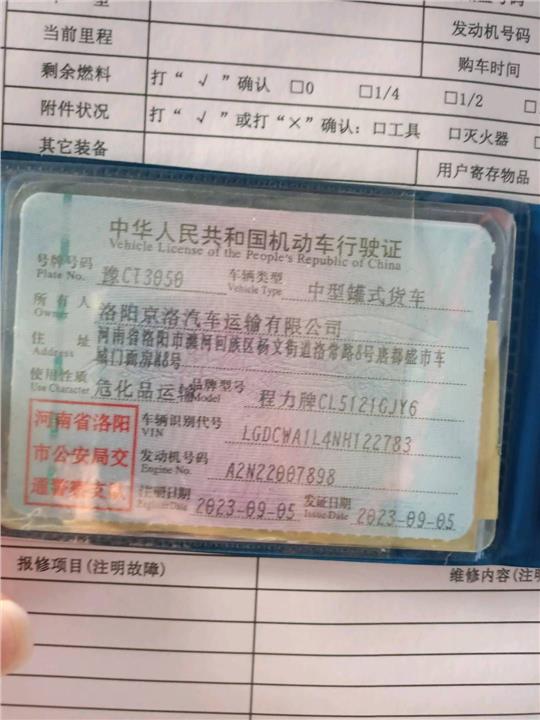 发动机号码
当前里程
购车时间
剩余燃料 打“√”确认 □0 □1/4 □1/2
附件状况 打“√”或打“×”确认：□工具 □灭火器
其它装备
用户寄存物品
中华人民共和国机动车行驶证
Vehicle License of the People's Republic of China
号牌号码 豫CT3050 车辆类型 中型罐式货车
Plate No. Vehicle Type
所有人 洛阳京洛汽车运输有限公司
Owner
住址 河南省洛阳市瀍河回族区杨文街道洛常路8号唐都盛市车
Address 城门面房48号
使用性质 危化品运输 品牌型号 程力牌CL5121GJY6
Use Character Model
河南省洛阳
市公安局交
通警察支队
车辆识别代号 LGDCWA1L4NH122783
VIN
发动机号码 A2N22007898
Engine No.
注册日期 2023-09-05 发证日期 2023-09-05
Register Date Issue Date
报修项目(注明故障) 维修内容(注明